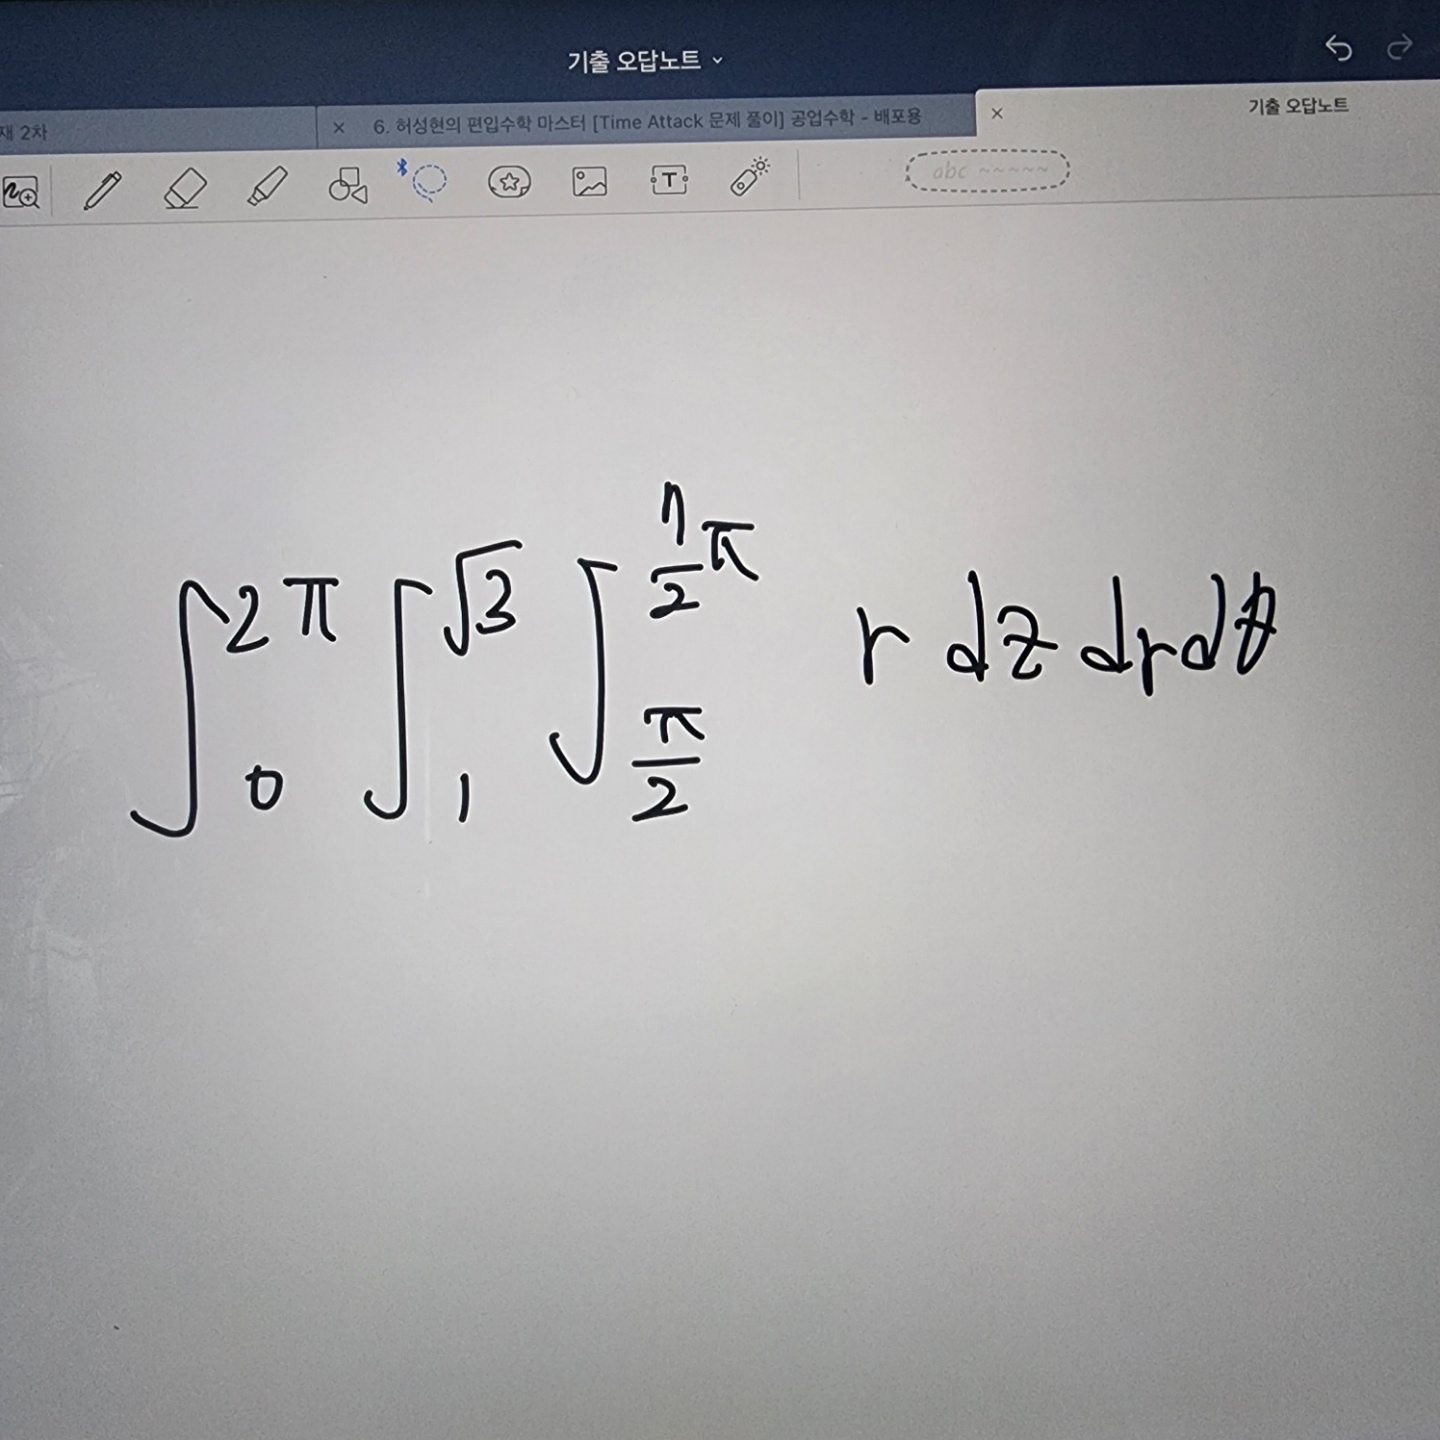 기출 오답노트
재 2차
6. 허성현의 편입수학 마스터 [Time Attack 문제 풀이] 공업수학 - 배포용
기출 오답노트
T
abc ~~~~~
∫₀^{2π} ∫₁^{√3} ∫_{π/2}^{7/2 π} r dz dr dθ